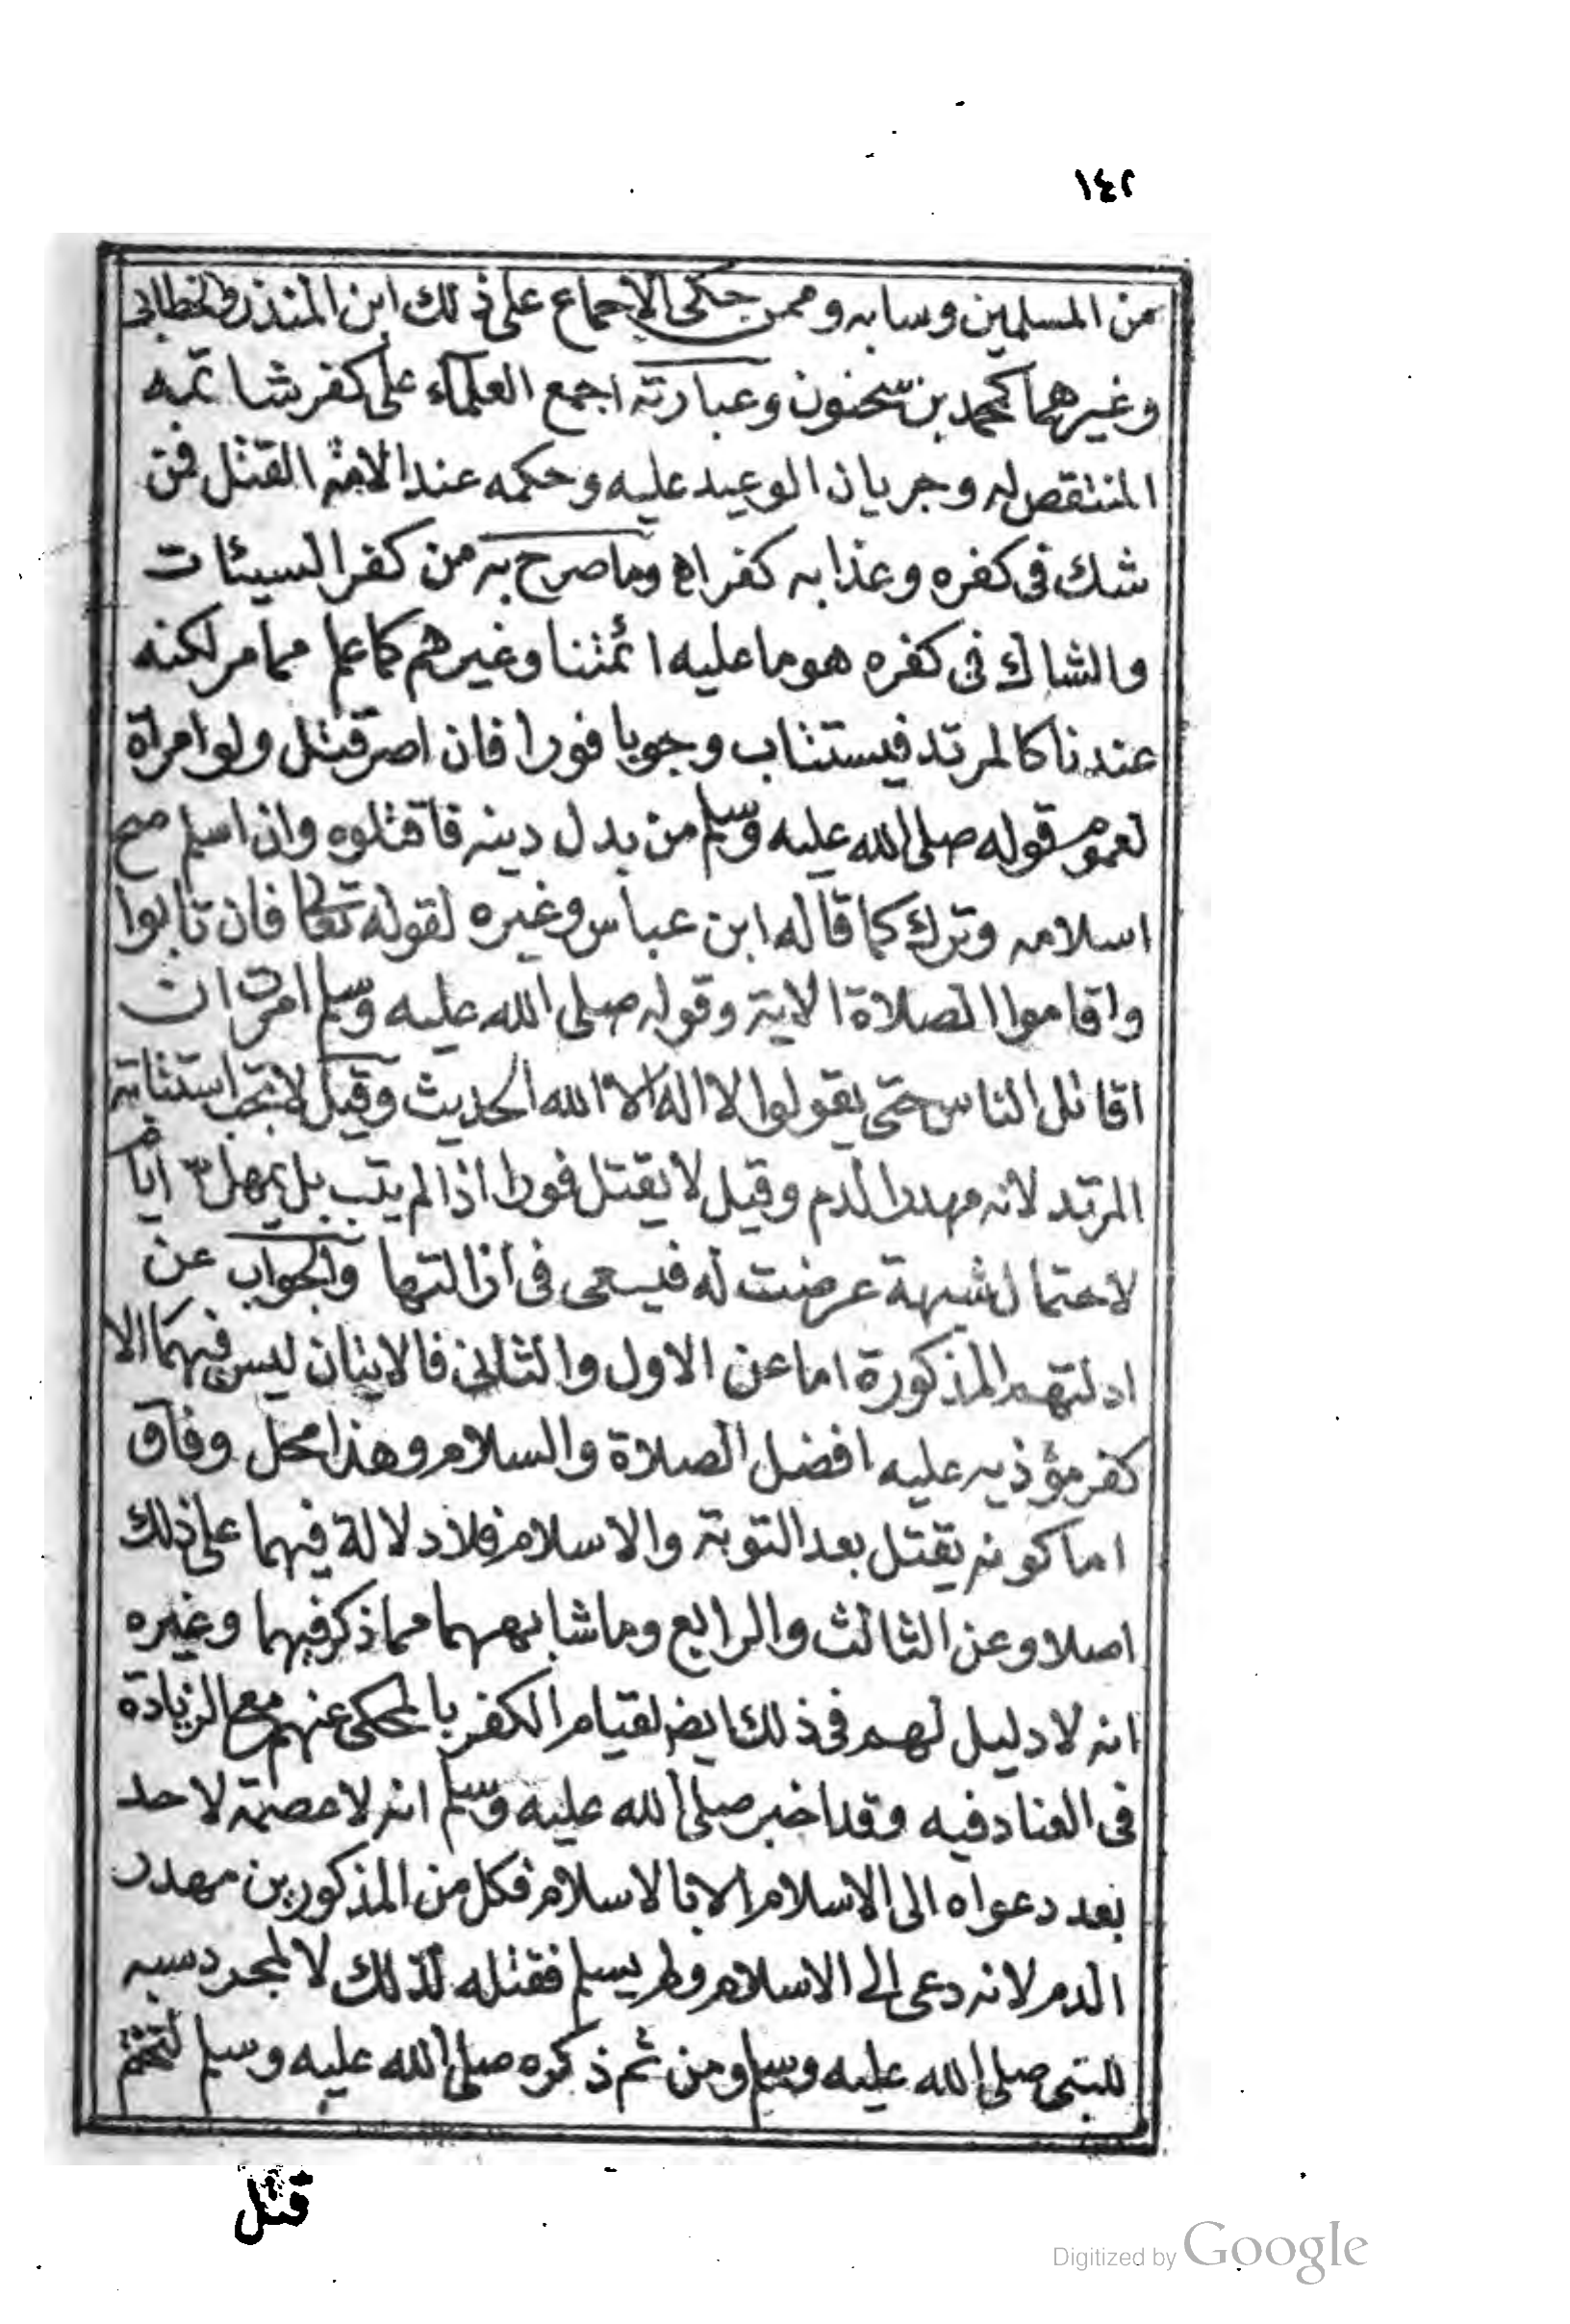 ١٤٢
من المسلمين وسابه وممن حكى الاجماع على ذلك ابن المنذر والخطابى
وغيرهما كمحمد بن سحنون وعبارته اجمع العلماء على كفر شاتمه
المنتقص له وجريان الوعيد عليه وحكمه عند الامة القتل فمن
شك فى كفره وعذابه كفر اه وما صرح به من كفر السيئات
والشاك فى كفره هو ما عليه ائمتنا وغيرهم كما علم مما مر لكنه
عندنا كالمرتد فيستتاب وجوبا فورا فان اصر قتل ولو امراة
لعموم قوله صلى الله عليه وسلم من بدل دينه فاقتلوه وان اسلم صح
اسلامه وترك كما قاله ابن عباس وغيره لقوله تعالى فان تابوا
واقاموا الصلاة الاية وقوله صلى الله عليه وسلم امرت ان
اقاتل الناس حتى يقولوا لا اله الا الله الحديث وقيل لا تجب استتابة
المرتد لانه مهدر الدم وقيل لا يقتل فورا اذا لم يتب بل يمهل ٣ ايام
لاحتمال شبهة عرضت له فيسعى فى ازالتها والجواب عن
ادلتهم المذكورة اما عن الاول والثانى فالايتان ليس فيهما الا
كفر مؤذيه عليه افضل الصلاة والسلام وهذا محل وفاق
اما كونه يقتل بعد التوبة والاسلام فلا دلالة فيهما على ذلك
اصلا وعن الثالث والرابع وما شابههما مما ذكر فيهما وغيره
انه لا دليل لهم فى ذلك ايض لقيام الكفر بالمحكى عنهم مع الزيادة
فى العناد فيه وقد اخبر صلى الله عليه وسلم انه لا عصمة لاحد
بعد دعواه الى الاسلام الا بالاسلام فكل من المذكورين مهدر
الدم لانه دعى الى الاسلام ولم يسلم فقتله لذلك لا لمجرد سبه
للنبى صلى الله عليه وسلم ومن ثم ذكره صلى الله عليه وسلم لتحتم
قتل
Digitized by Google